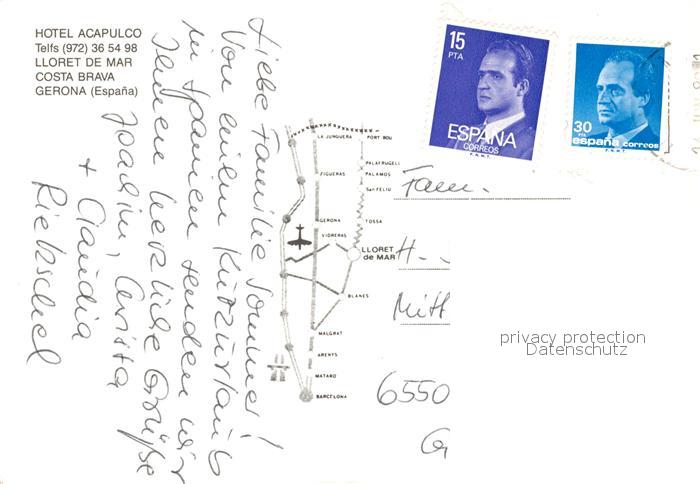 HOTEL ACAPULCO
Telfs (972) 36 54 98
LLORET DE MAR
COSTA BRAVA
GERONA (España)
Liebe Familie Sommer!
Von einem Kurzurlaub
in Spanien senden wir
Ihnen herzliche Grüße
Joachim, Christa
+ Claudia
Rietzschel
15
PTA
ESPAÑA
CORREOS
F.N.M.T.
30
PTA
españa correos
F.N.M.T.
LA JUNQUERA
PORT BOU
PALAFRUGELL
FIGUERAS
PALAMOS
San FELIU
GERONA
TOSSA
VIDRERAS
LLORET
de MAR
BLANES
MALGRAT
ARENYS
MATARO
BARCELONA
Fam.
H.
Mitt
6550
privacy protection
Datenschutz